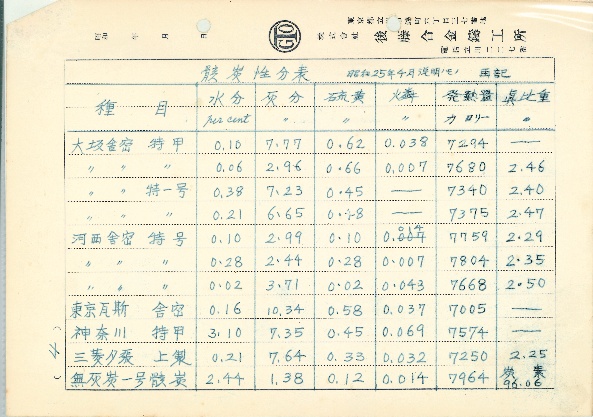 昭和 年 月 日
GTO
株式会社 後藤合金鋳工所
骸炭性分表 昭和25年4月説明(モ) 再記
種目 水分 灰分 硫黄 燐 発熱量 真比重
per cent 〃 〃 〃 カロリー 〃
大坂舎密 特甲 0.10 7.77 0.62 0.038 7294 —
〃 〃 〃 0.06 2.96 0.66 0.007 7680 2.46
〃 〃 特一号 0.38 7.23 0.45 — 7340 2.40
〃 〃 〃 0.21 6.65 — 7375 2.47
河西舎密 特号 0.10 2.99 0.10 0.014 7759 2.29
〃 〃 〃 0.28 2.44 0.28 0.007 7804 2.35
〃 〃 〃 0.02 3.71 0.02 0.043 7668 2.50
東京瓦斯 舎密 0.16 10.34 0.58 0.037 7005 —
神奈川 特甲 3.10 7.35 0.45 0.069 7574 —
三菱夕張 上製 0.21 7.64 0.33 0.032 7250 2.25
無灰炭一号骸炭 2.44 1.38 0.12 0.014 7964 炭素 96.06
(4)